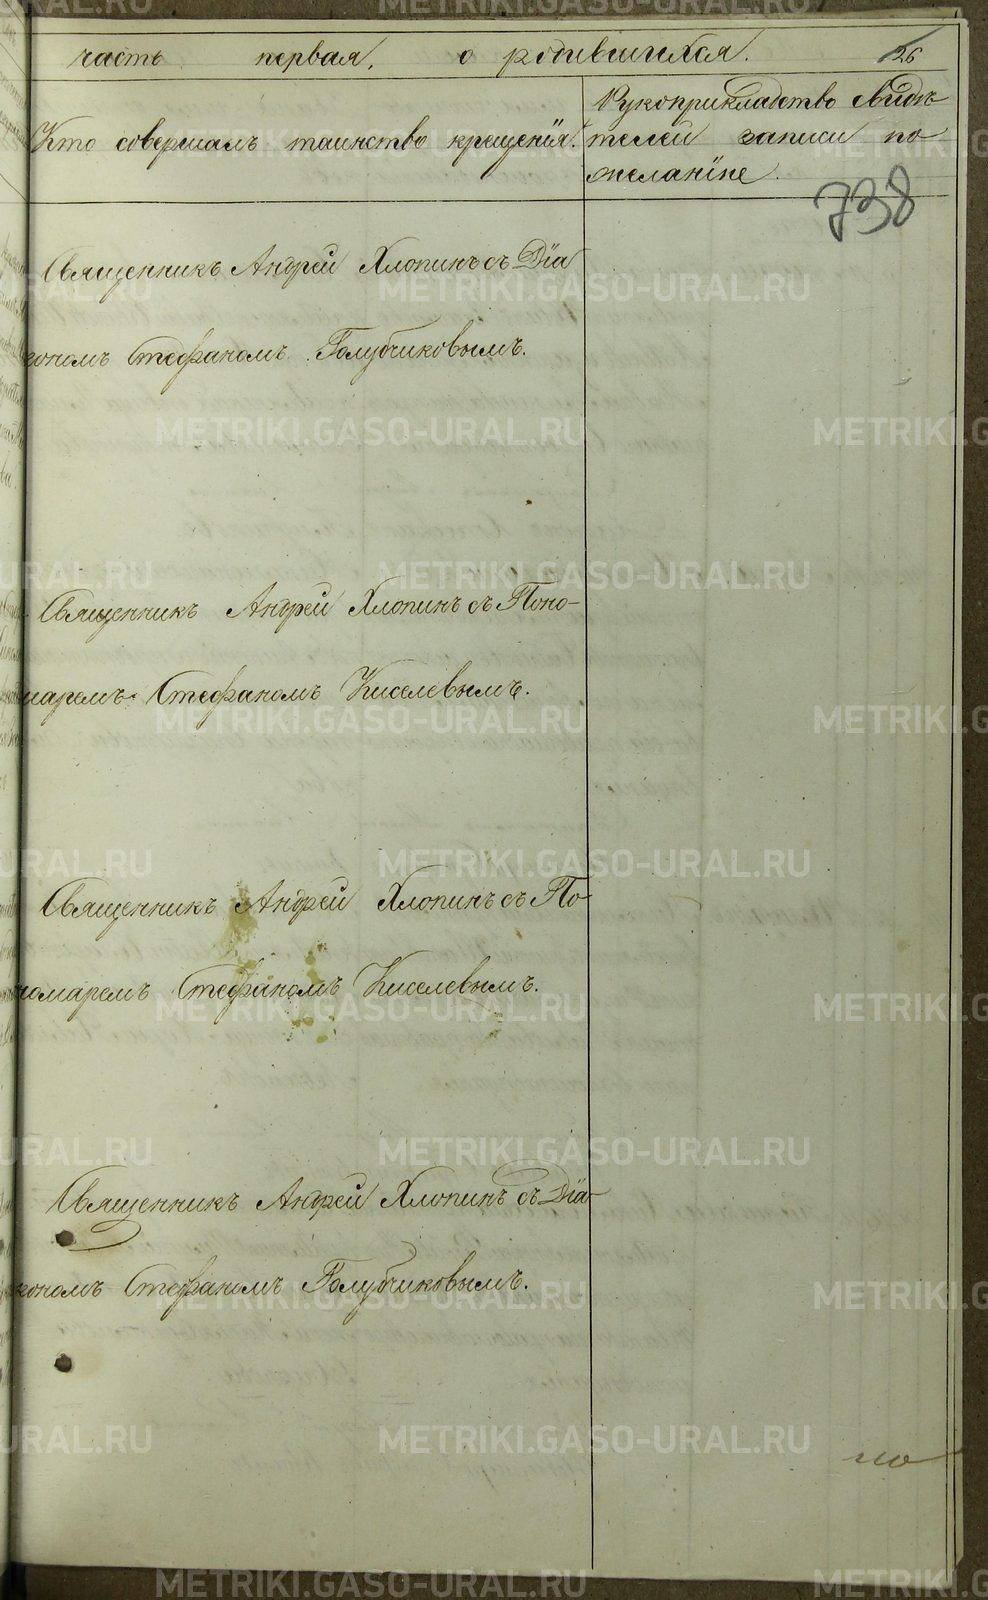 часть первая, о родившихся. 126
Кто совершалъ таинство крещенія.
Рукоприкладство свидѣ
телей записи по
желанію.
738
Священникъ Андрей Хлопинъ съ Діа
кономъ Стефаномъ Голубчиковымъ.
Священникъ Андрей Хлопинъ съ Поно-
маремъ Стефаномъ Киселевымъ.
Священникъ Андрей Хлопинъ съ По-
номаремъ Стефаномъ Киселевымъ.
Священникъ Андрей Хлопинъ съ Діа-
кономъ Стефаномъ Голубчиковымъ.
по
METRIKI.GASO-URAL.RU